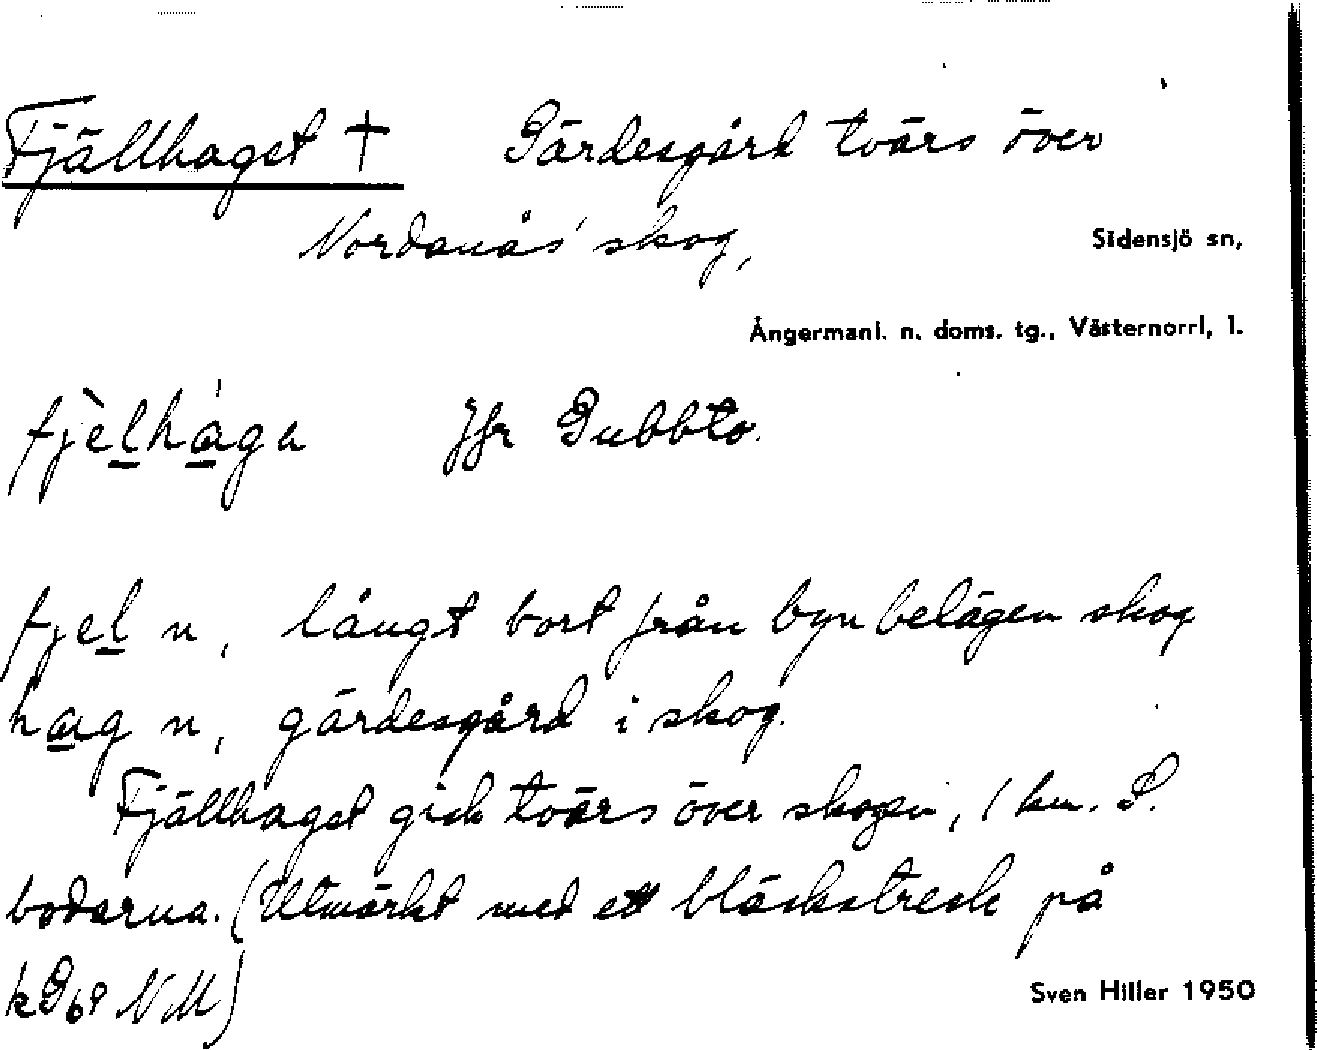 Fjällhaget † Gärdesgård tvärs över
Nordanås' skog,
Sidensjö sn,
Ångermanl. n. doms. tg., Västernorrl, l.
fjèlhága Jfr Gubbto.
fjel n, långt bort från byn belägen skog
hag n, gärdesgård i skog.
Fjällhaget gick tvärs över skogen, 1 km. S.
bodarna. (Utmärkt med ett bläckstreck på
NM)
Sven Hiller 1950